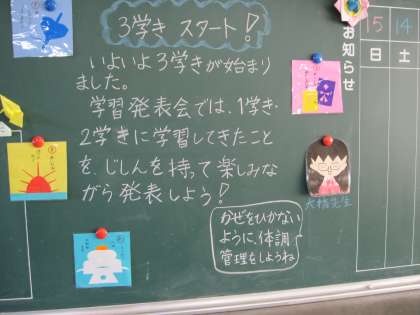 3学き スタート!
いよいよ3学きが始まり
ました。
学習発表会では、1学き・
2学きに学習してきたこと
を、じしんを持って楽しみな
がら発表しよう!
かぜをひかない
ように、体調
管理をしようね
お知らせ
15 14
日 土